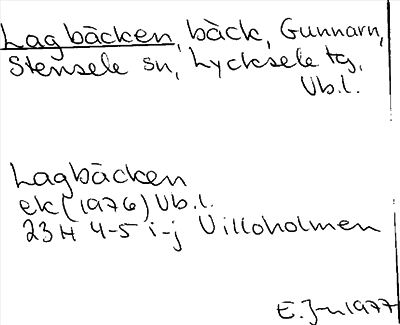 Lagbäcken, bäck, Gunnarn,
Stensele sn, Lycksele tg,
Vb.l.
Lagbäcken
ek (1976) Vb.l.
23H 4-5 i-j Villoholmen
E.J-n 1977